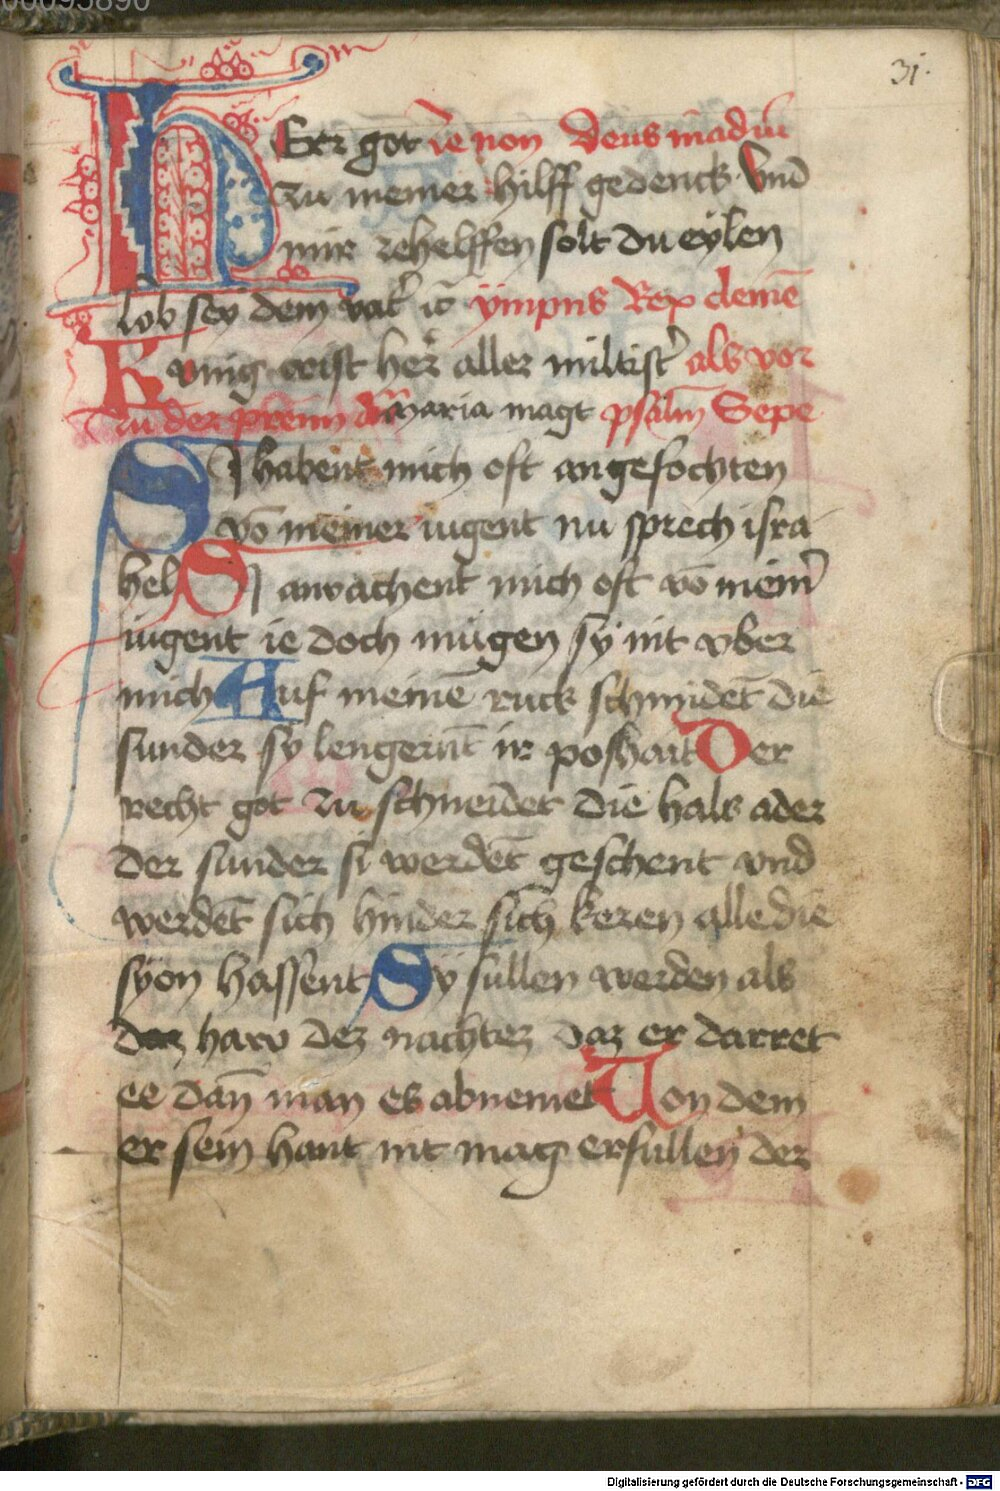 00095890
31.
HErr got ze non Deus in adiu
zu meiner hilff gedenck Vnd
mir zehelffen solt du eylen
lob sey dem vat' ic̄ ympnus Rex clemē
Kunig crist her aller miltist' als vor
zu der prim Maria magt psalm Sepe
SJ habent mich oft angefochten
vō meiner iugent nu sprech isra
hel SJ anvachent mich oft vō meīn'
iugent ie doch mügen sy nit vber
mich Auf meinē ruck schmidet̄ die
sunder sy lengernt̄ ir poshait Der
recht got zu schneidet die hals ader
der sunder si werdet̄ geschent vnd
werdet̄ sich hinder sich keren alle die
syon hassent Sy sullen werden als
daz haw dez nachtez daz er darret
ee dan̄ man es abnemet Uon dem
er sein hant nit mag erfullen der
Digitalisierung gefördert durch die Deutsche Forschungsgemeinschaft - DFG